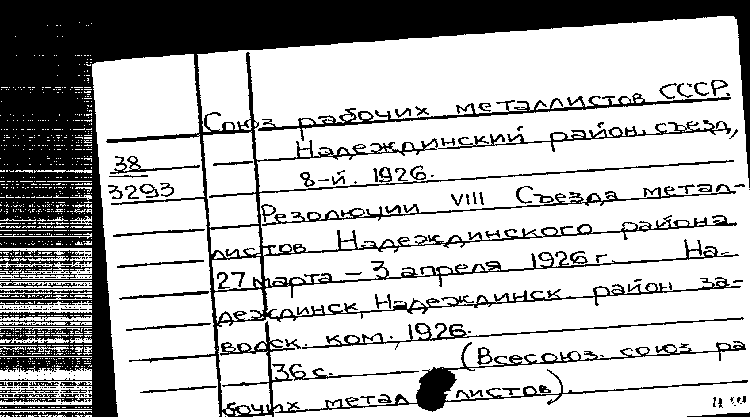 Союз рабочих металлистов СССР.
Надеждинский район. съезд,
38
8-й. 1926.
3293
Резолюции VIII Съезда метал-
листов Надеждинского района
27 марта – 3 апреля 1926 г. На-
деждинск, Надеждинск. район за-
водск. ком., 1926.
36 с. (Всесоюз. союз ра
бочих метал листов)